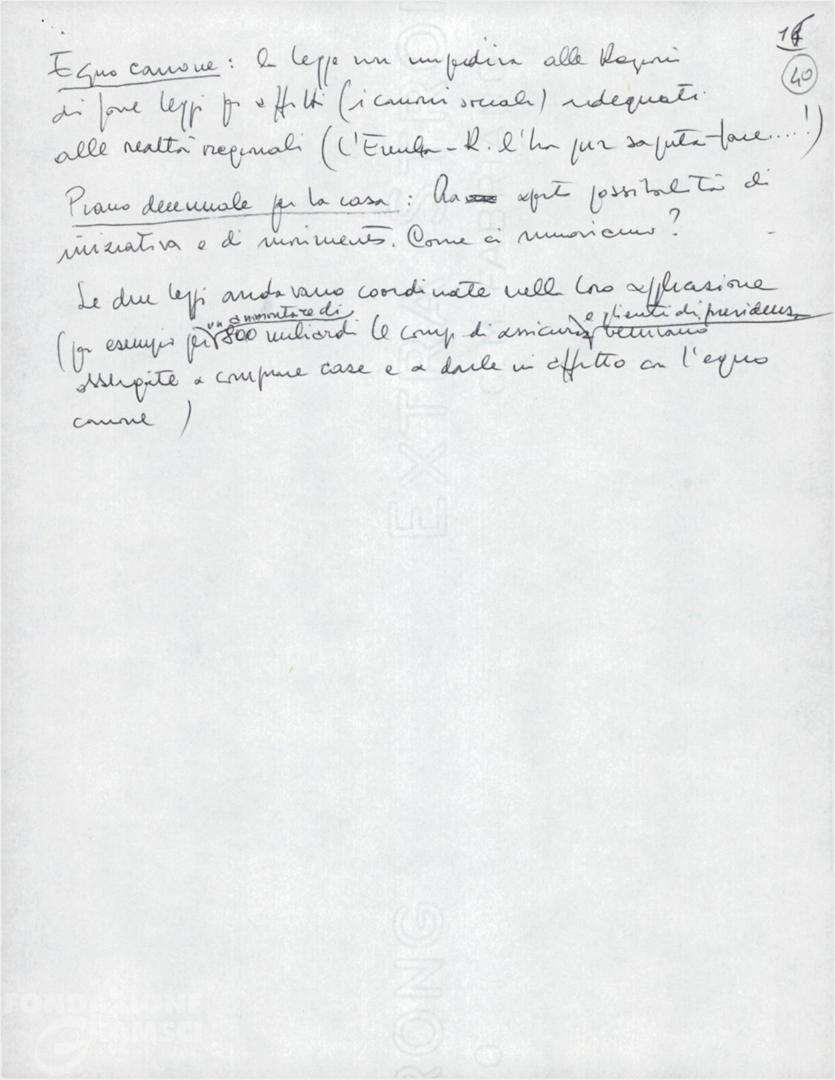 16
40
Equo canone: la legge non impediva alle Regioni
di fare leggi per affitti (i canoni sociali) adeguati
alle realtà regionali (L'Emilia-R. l'ha pur saputa fare....!)
Piano decennale per la casa: Ha aperto possibilità di
iniziativa e di movimento. Come ci muoviamo?
Le due leggi andavano coordinate nella loro applicazione
(per esempio per un ammontare di 800 miliardi le comp. di assicuraz. e gli enti di previdenza venivano
obbligate a comprare case e a darle in affitto con l'equo
canone)
EXTRA STRONG
FONDAZIONE
GRAMSCI